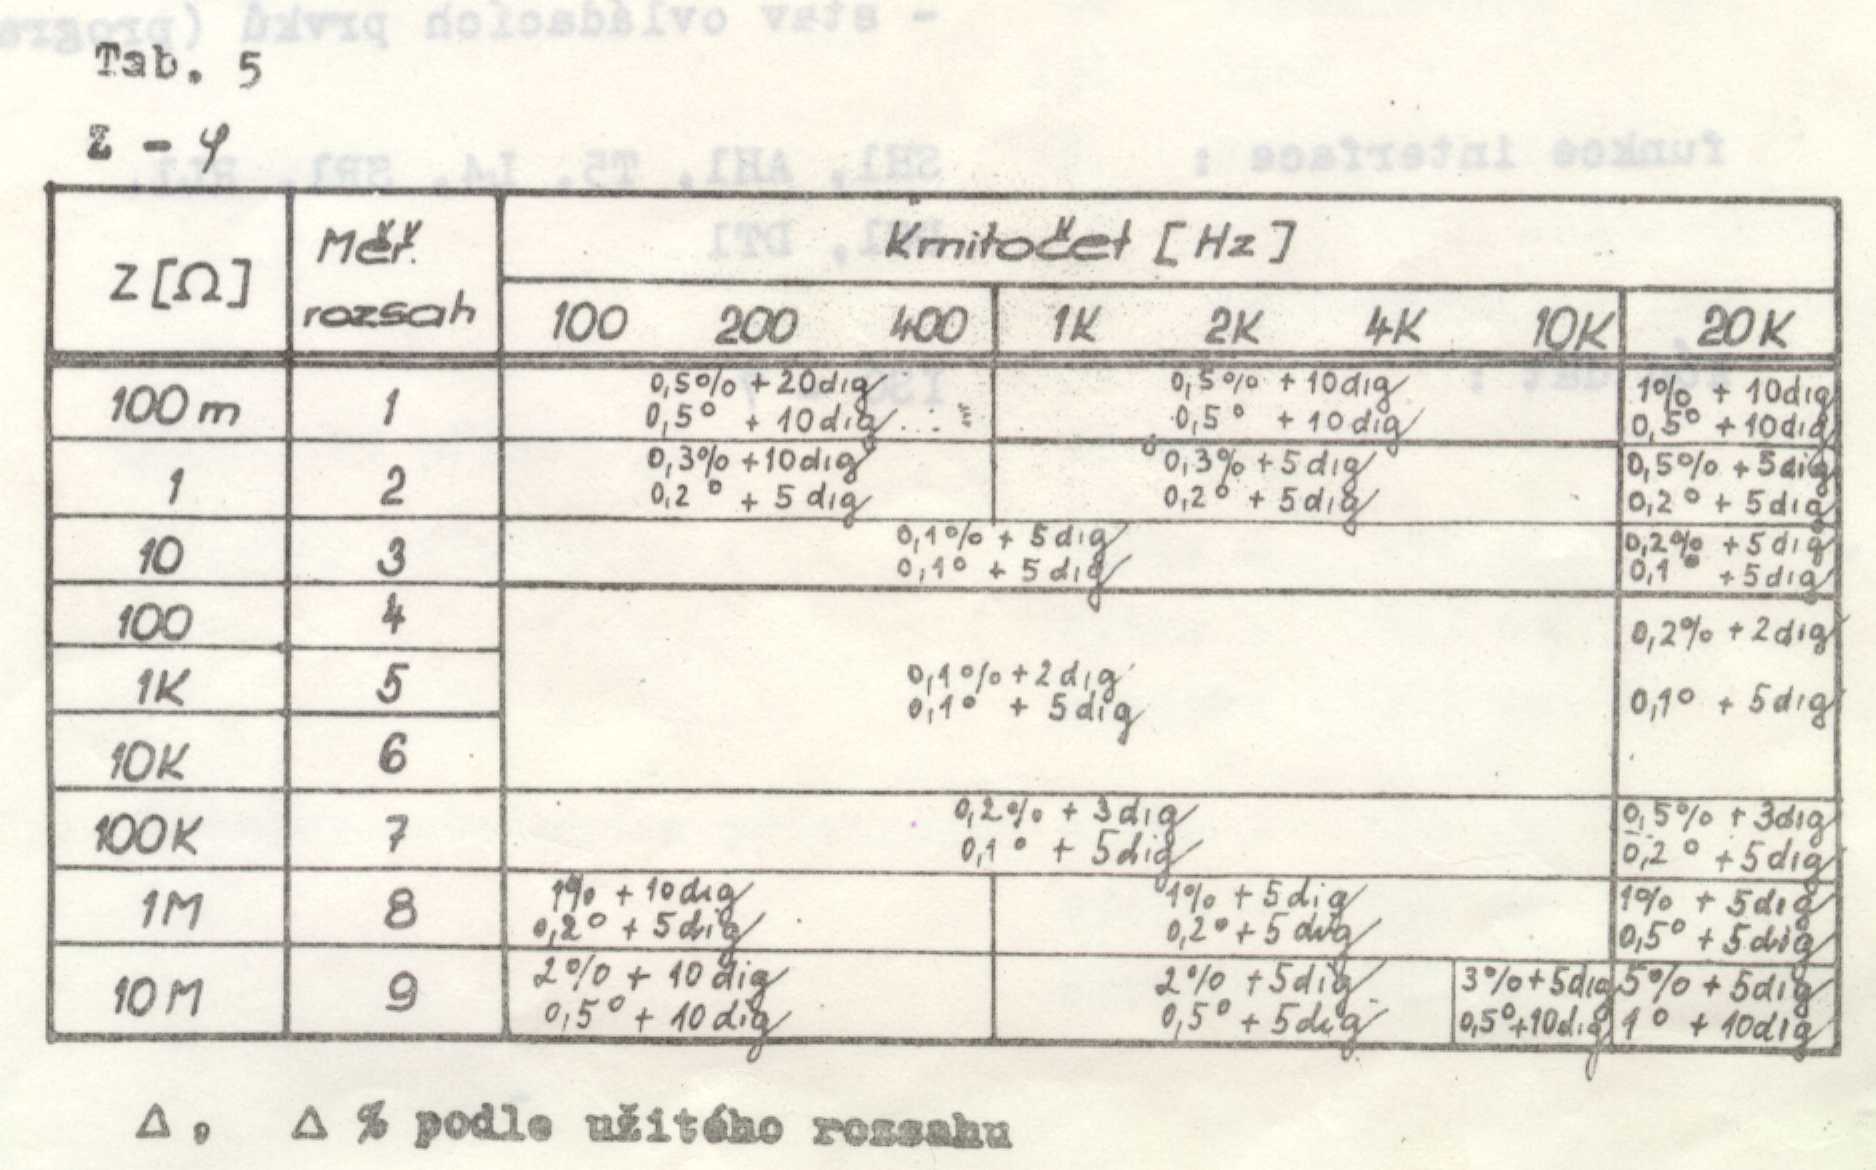 Tab. 5
Z - φ
Z [Ω] Měř. rozsah Kmitočet [Hz]
100 200 400 1K 2K 4K 10K 20K
100 m 1 0,5% + 20 dig 0,5% + 10 dig 1% + 10 dig
0,5° + 10 dig 0,5° + 10 dig 0,5° + 10 dig
1 2 0,3% + 10 dig 0,3% + 5 dig 0,5% + 5 dig
0,2° + 5 dig 0,2° + 5 dig 0,2° + 5 dig
10 3 0,1% + 5 dig 0,2% + 5 dig
0,1° + 5 dig 0,1° + 5 dig
100 4 0,2% + 2 dig
1K 5 0,1% + 2 dig
0,1° + 5 dig 0,1° + 5 dig
10K 6
100K 7 0,2% + 3 dig 0,5% + 3 dig
0,1° + 5 dig 0,2° + 5 dig
1M 8 1% + 10 dig 1% + 5 dig 1% + 5 dig
0,2° + 5 dig 0,2° + 5 dig 0,5° + 5 dig
10M 9 2% + 10 dig 2% + 5 dig 3% + 5 dig 5% + 5 dig
0,5° + 10 dig 0,5° + 5 dig 0,5° + 10 dig 1° + 10 dig
Δ, Δ % podle užitého rozsahu